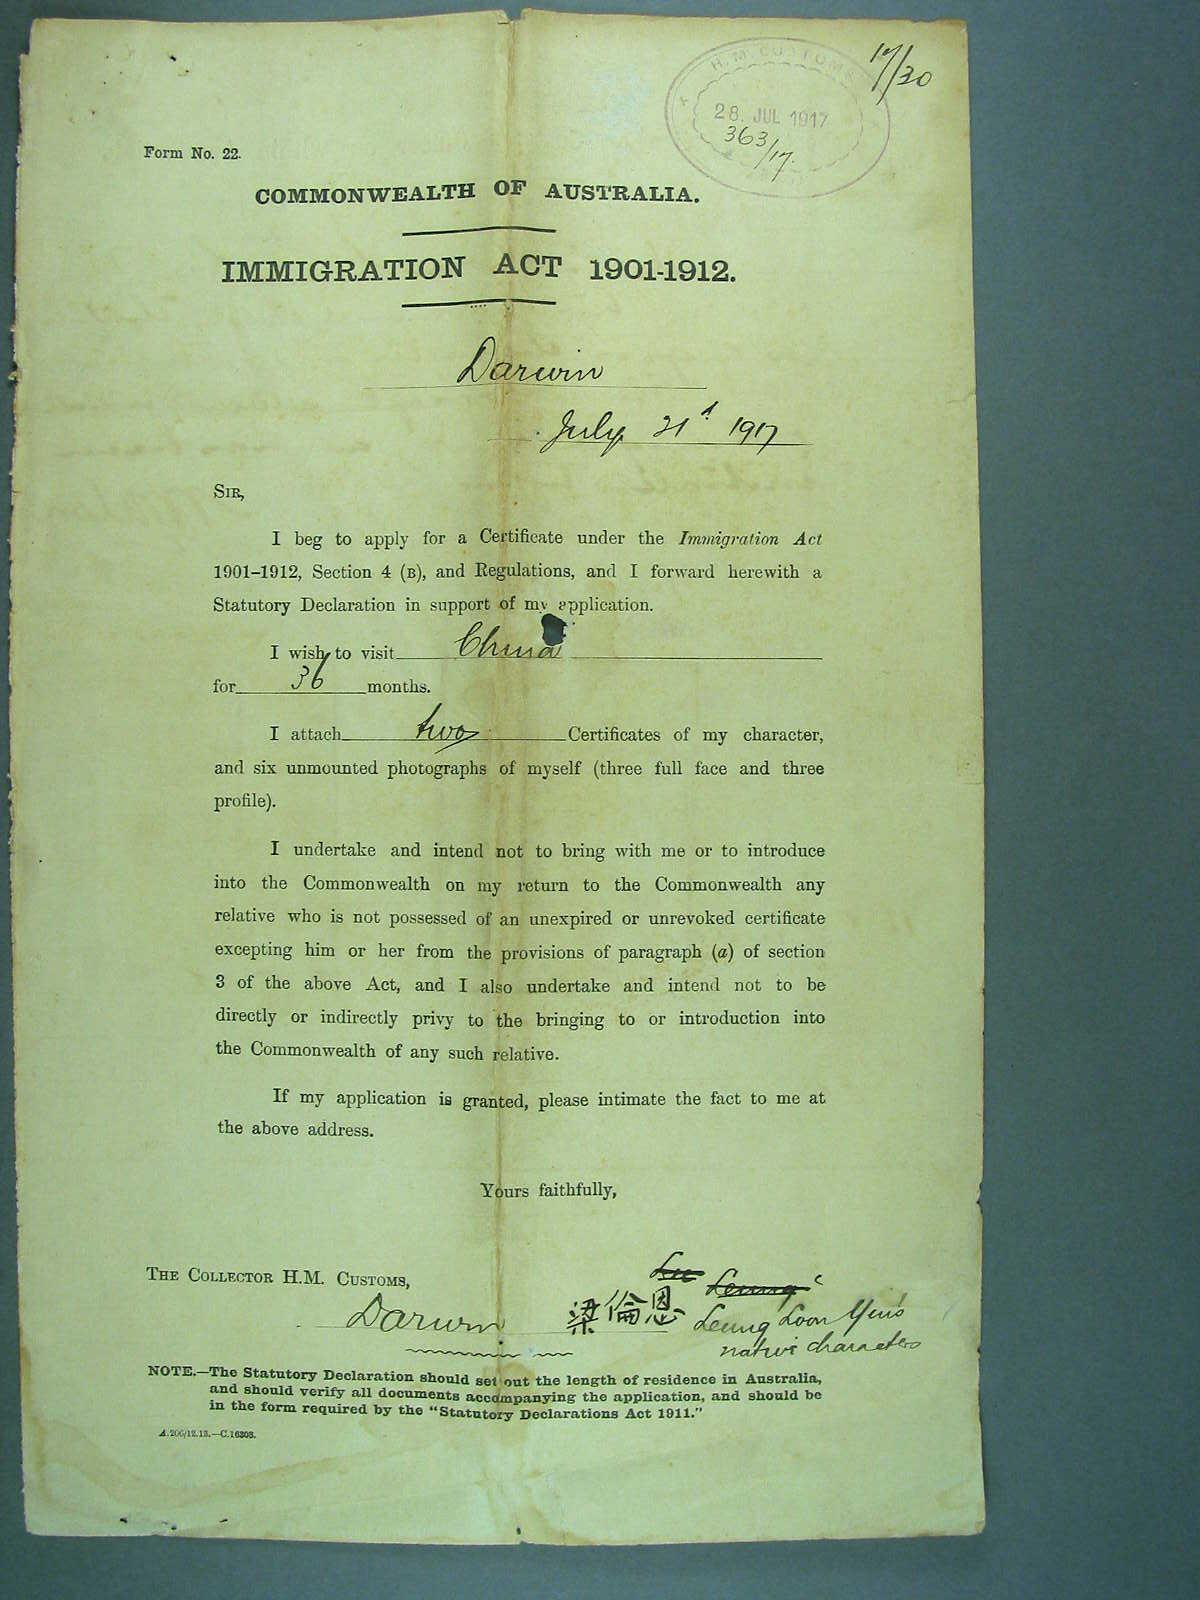 17/30
H.M CUSTOMS
28. JUL 1917
363/17.
Form No. 22.
COMMONWEALTH OF AUSTRALIA.
IMMIGRATION ACT 1901-1912.
Darwin
July 21st 1917
SIR,
I beg to apply for a Certificate under the Immigration Act
1901–1912, Section 4 (B), and Regulations, and I forward herewith a
Statutory Declaration in support of my application.
I wish to visit China
for 36 months.
I attach two Certificates of my character,
and six unmounted photographs of myself (three full face and three
profile).
I undertake and intend not to bring with me or to introduce
into the Commonwealth on my return to the Commonwealth any
relative who is not possessed of an unexpired or unrevoked certificate
excepting him or her from the provisions of paragraph (a) of section
3 of the above Act, and I also undertake and intend not to be
directly or indirectly privy to the bringing to or introduction into
the Commonwealth of any such relative.
If my application is granted, please intimate the fact to me at
the above address.
Yours faithfully,
THE COLLECTOR H.M. CUSTOMS,
Leung
Darwin 梁倫恩 Leung Loon Yin's
native characters
NOTE.—The Statutory Declaration should set out the length of residence in Australia,
and should verify all documents accompanying the application, and should be
in the form required by the "Statutory Declarations Act 1911."
A.206/12.13.—C.16303.